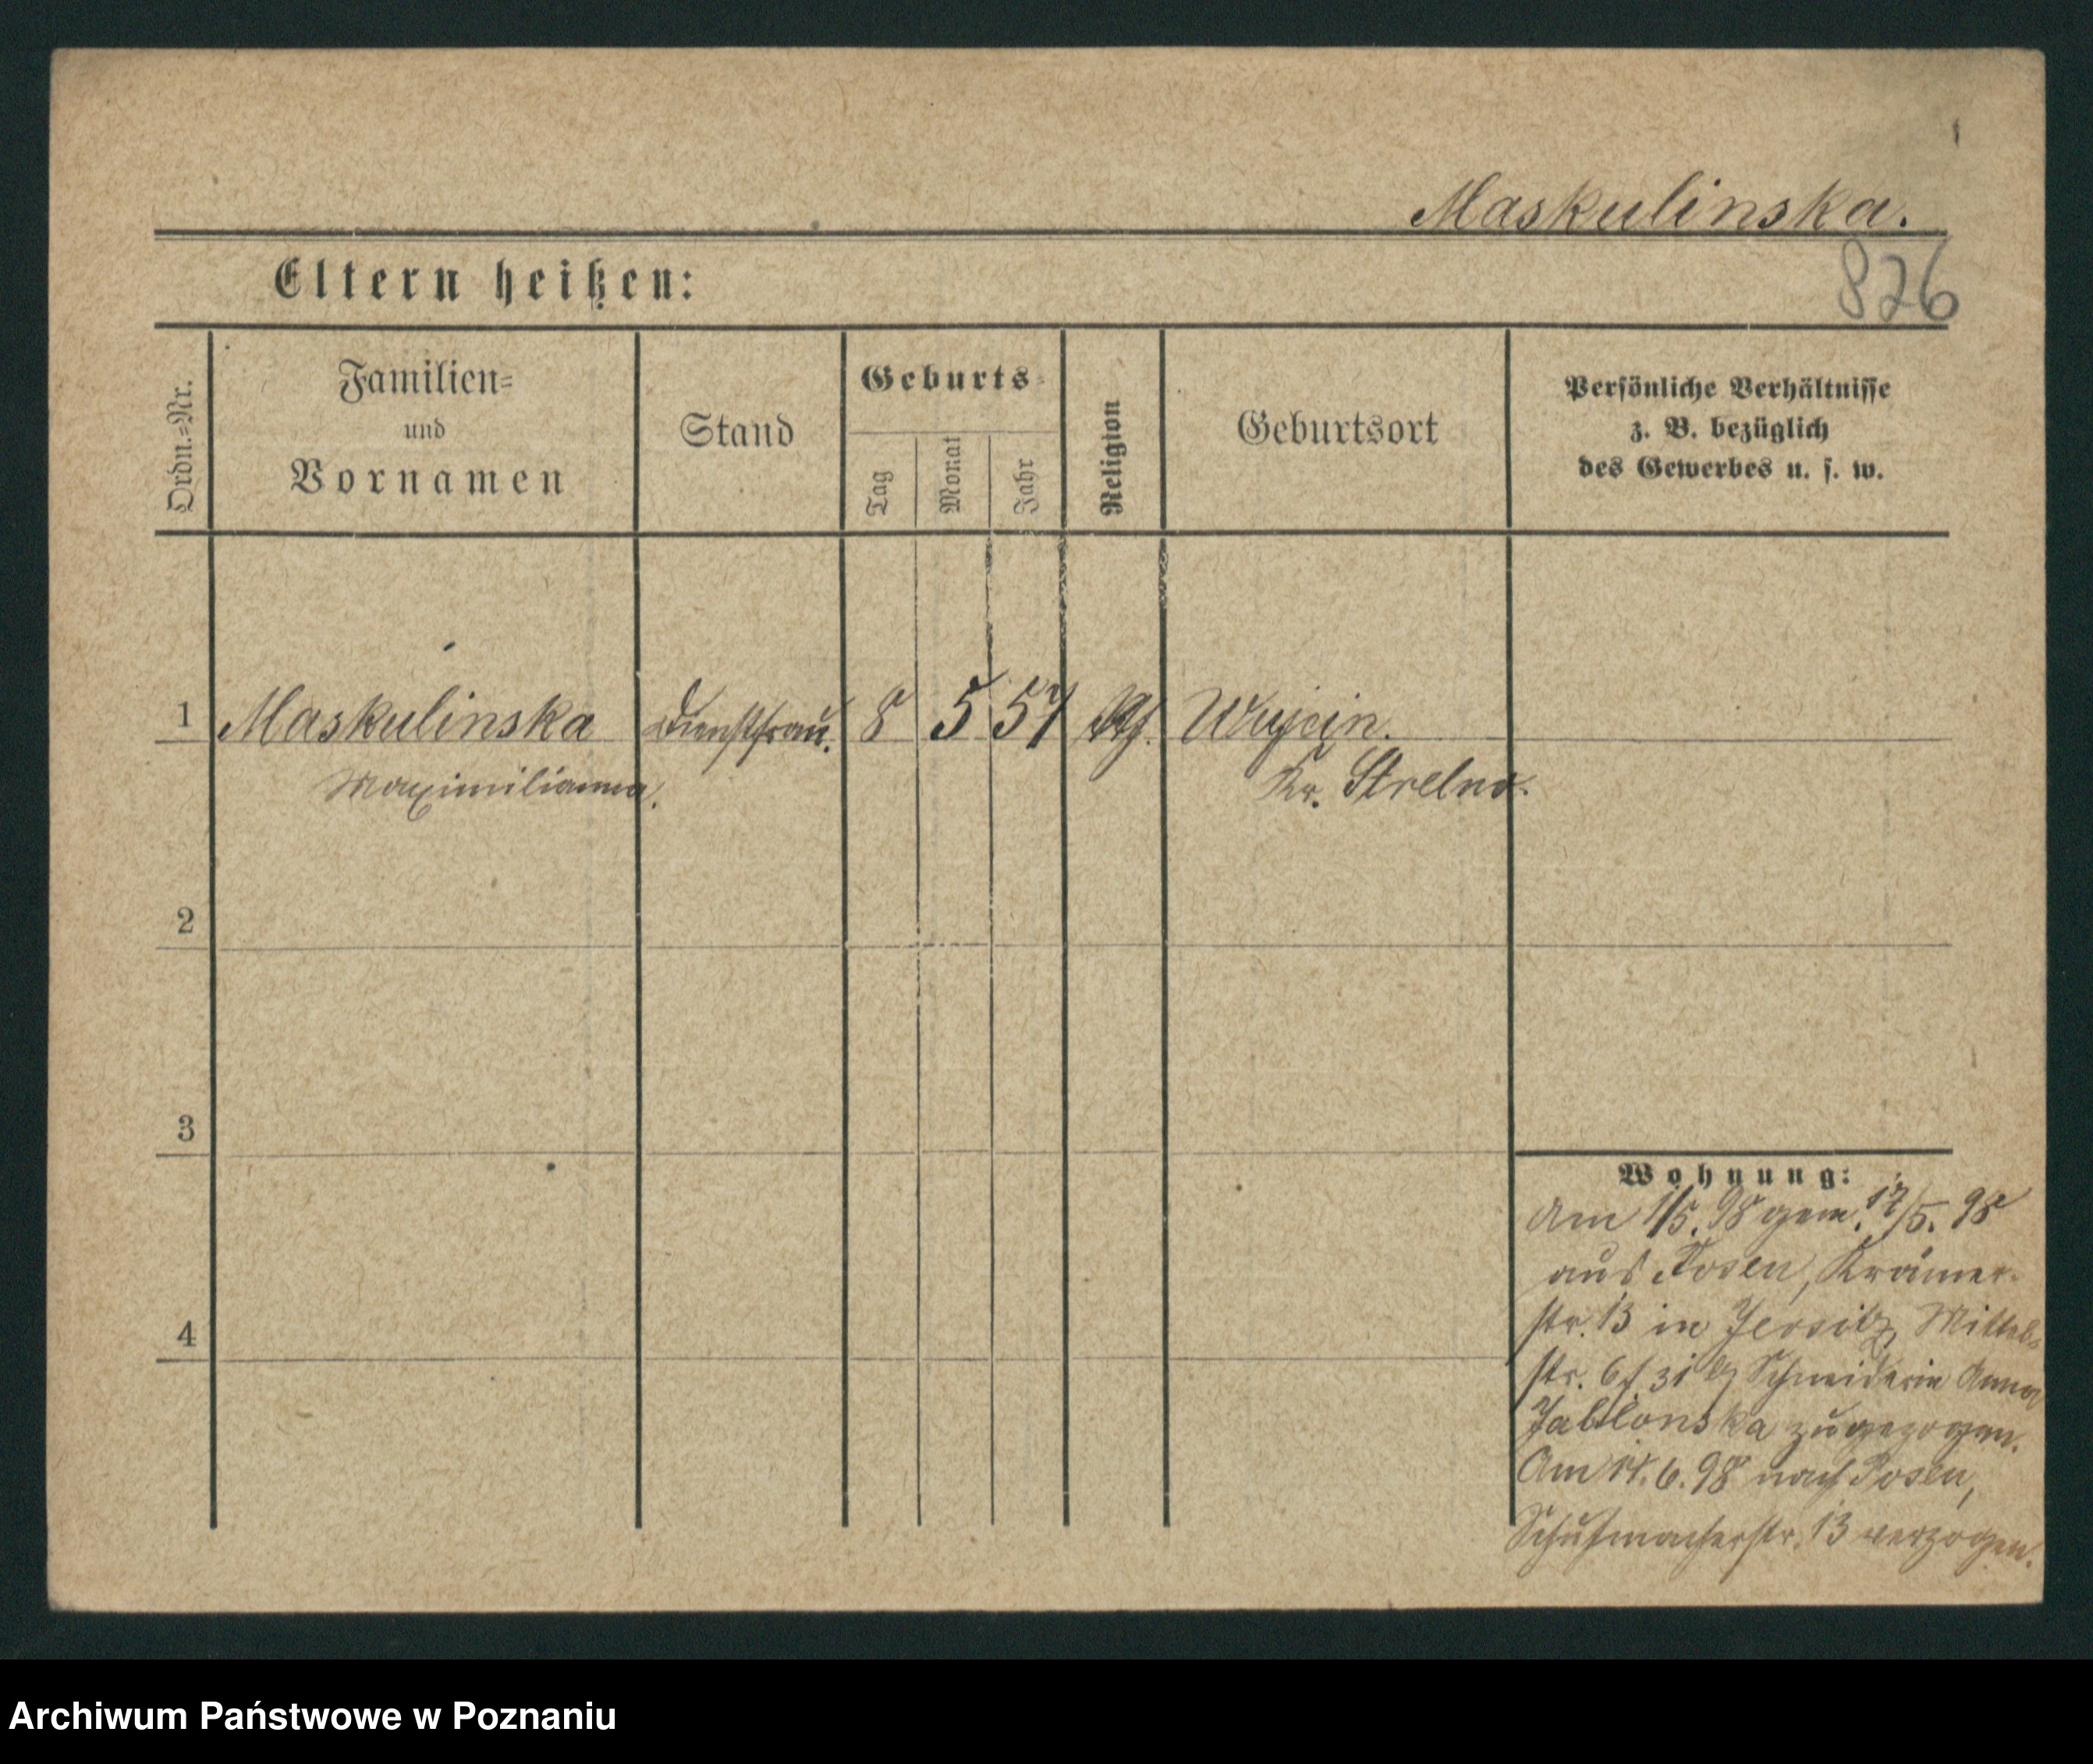 Maskulinska.
Eltern heißen:
826
Ordn.=Nr.
Familien=
und
Vornamen
Stand
Geburts=
Tag
Monat
Jahr
Religion
Geburtsort
Persönliche Verhältnisse
z. B. bezüglich
des Gewerbes u. s. w.
1 Maskulinska Dienstfrau. 8 5 57 Wujcin.
Maximilianna. Kr. Strelno.
2
3
4
Wohnung:
Am 1/5. 98 gem. 17/5. 98
aus Posen, Krämer-
str. 13 in Jersitz, Mittel-
str. 6 Schneiderin Anna
Jablonska zugezogen.
Am 14. 6. 98 nach Posen,
Schuhmacherstr. 13 verzogen.
Archiwum Państwowe w Poznaniu